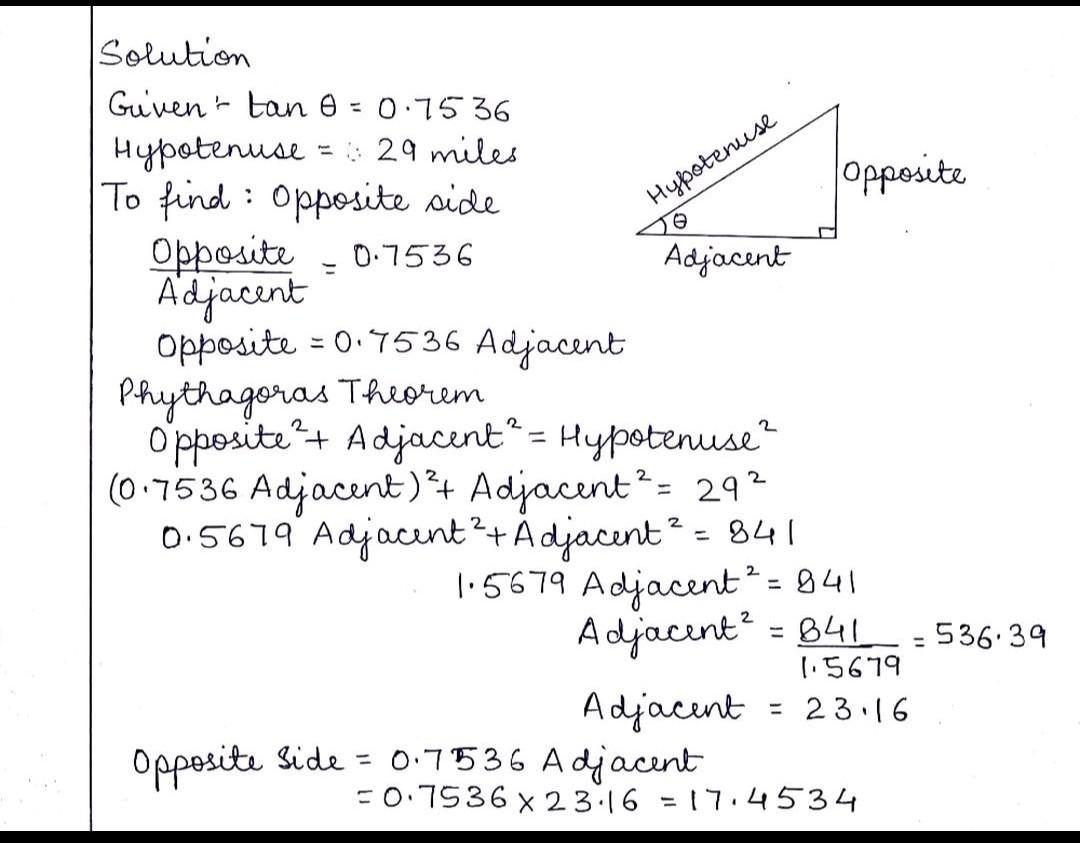 Solution
Given :- tan θ = 0.7536
Hypotenuse = 29 miles
To find : Opposite side
Opposite / Adjacent = 0.7536
Opposite = 0.7536 Adjacent
Phythagoras Theorem
Opposite² + Adjacent² = Hypotenuse²
(0.7536 Adjacent)² + Adjacent² = 29²
0.5679 Adjacent² + Adjacent² = 841
1.5679 Adjacent² = 841
Adjacent² = 841 / 1.5679 = 536.39
Adjacent = 23.16
Opposite Side = 0.7536 Adjacent
= 0.7536 × 23.16 = 17.4534
Hypotenuse
Opposite
θ
Adjacent